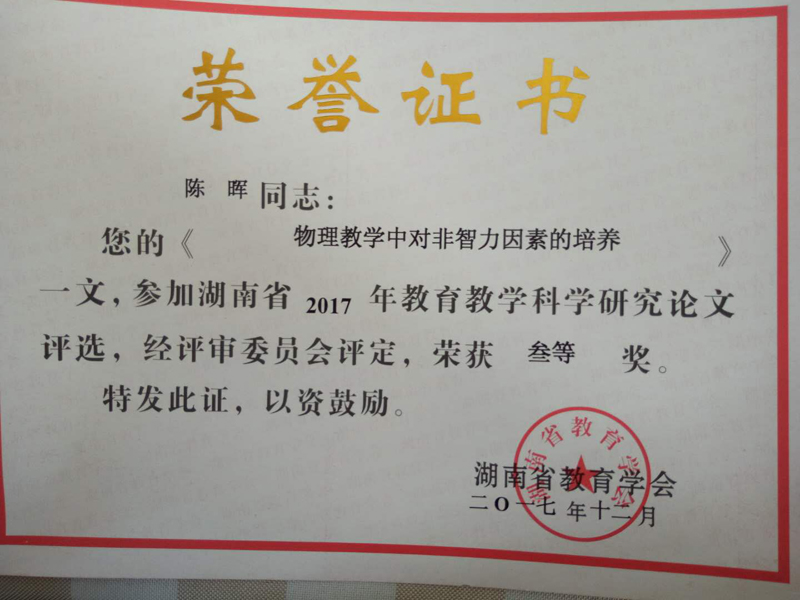 荣誉证书
陈 晖 同志：
您的《 物理教学中对非智力因素的培养 》
一文，参加湖南省 2017 年教育教学科学研究论文
评选，经评审委员会评定，荣获 叁等 奖。
特发此证，以资鼓励。
湖南省教育学会
湖南省教育学会
二O一七年十二月